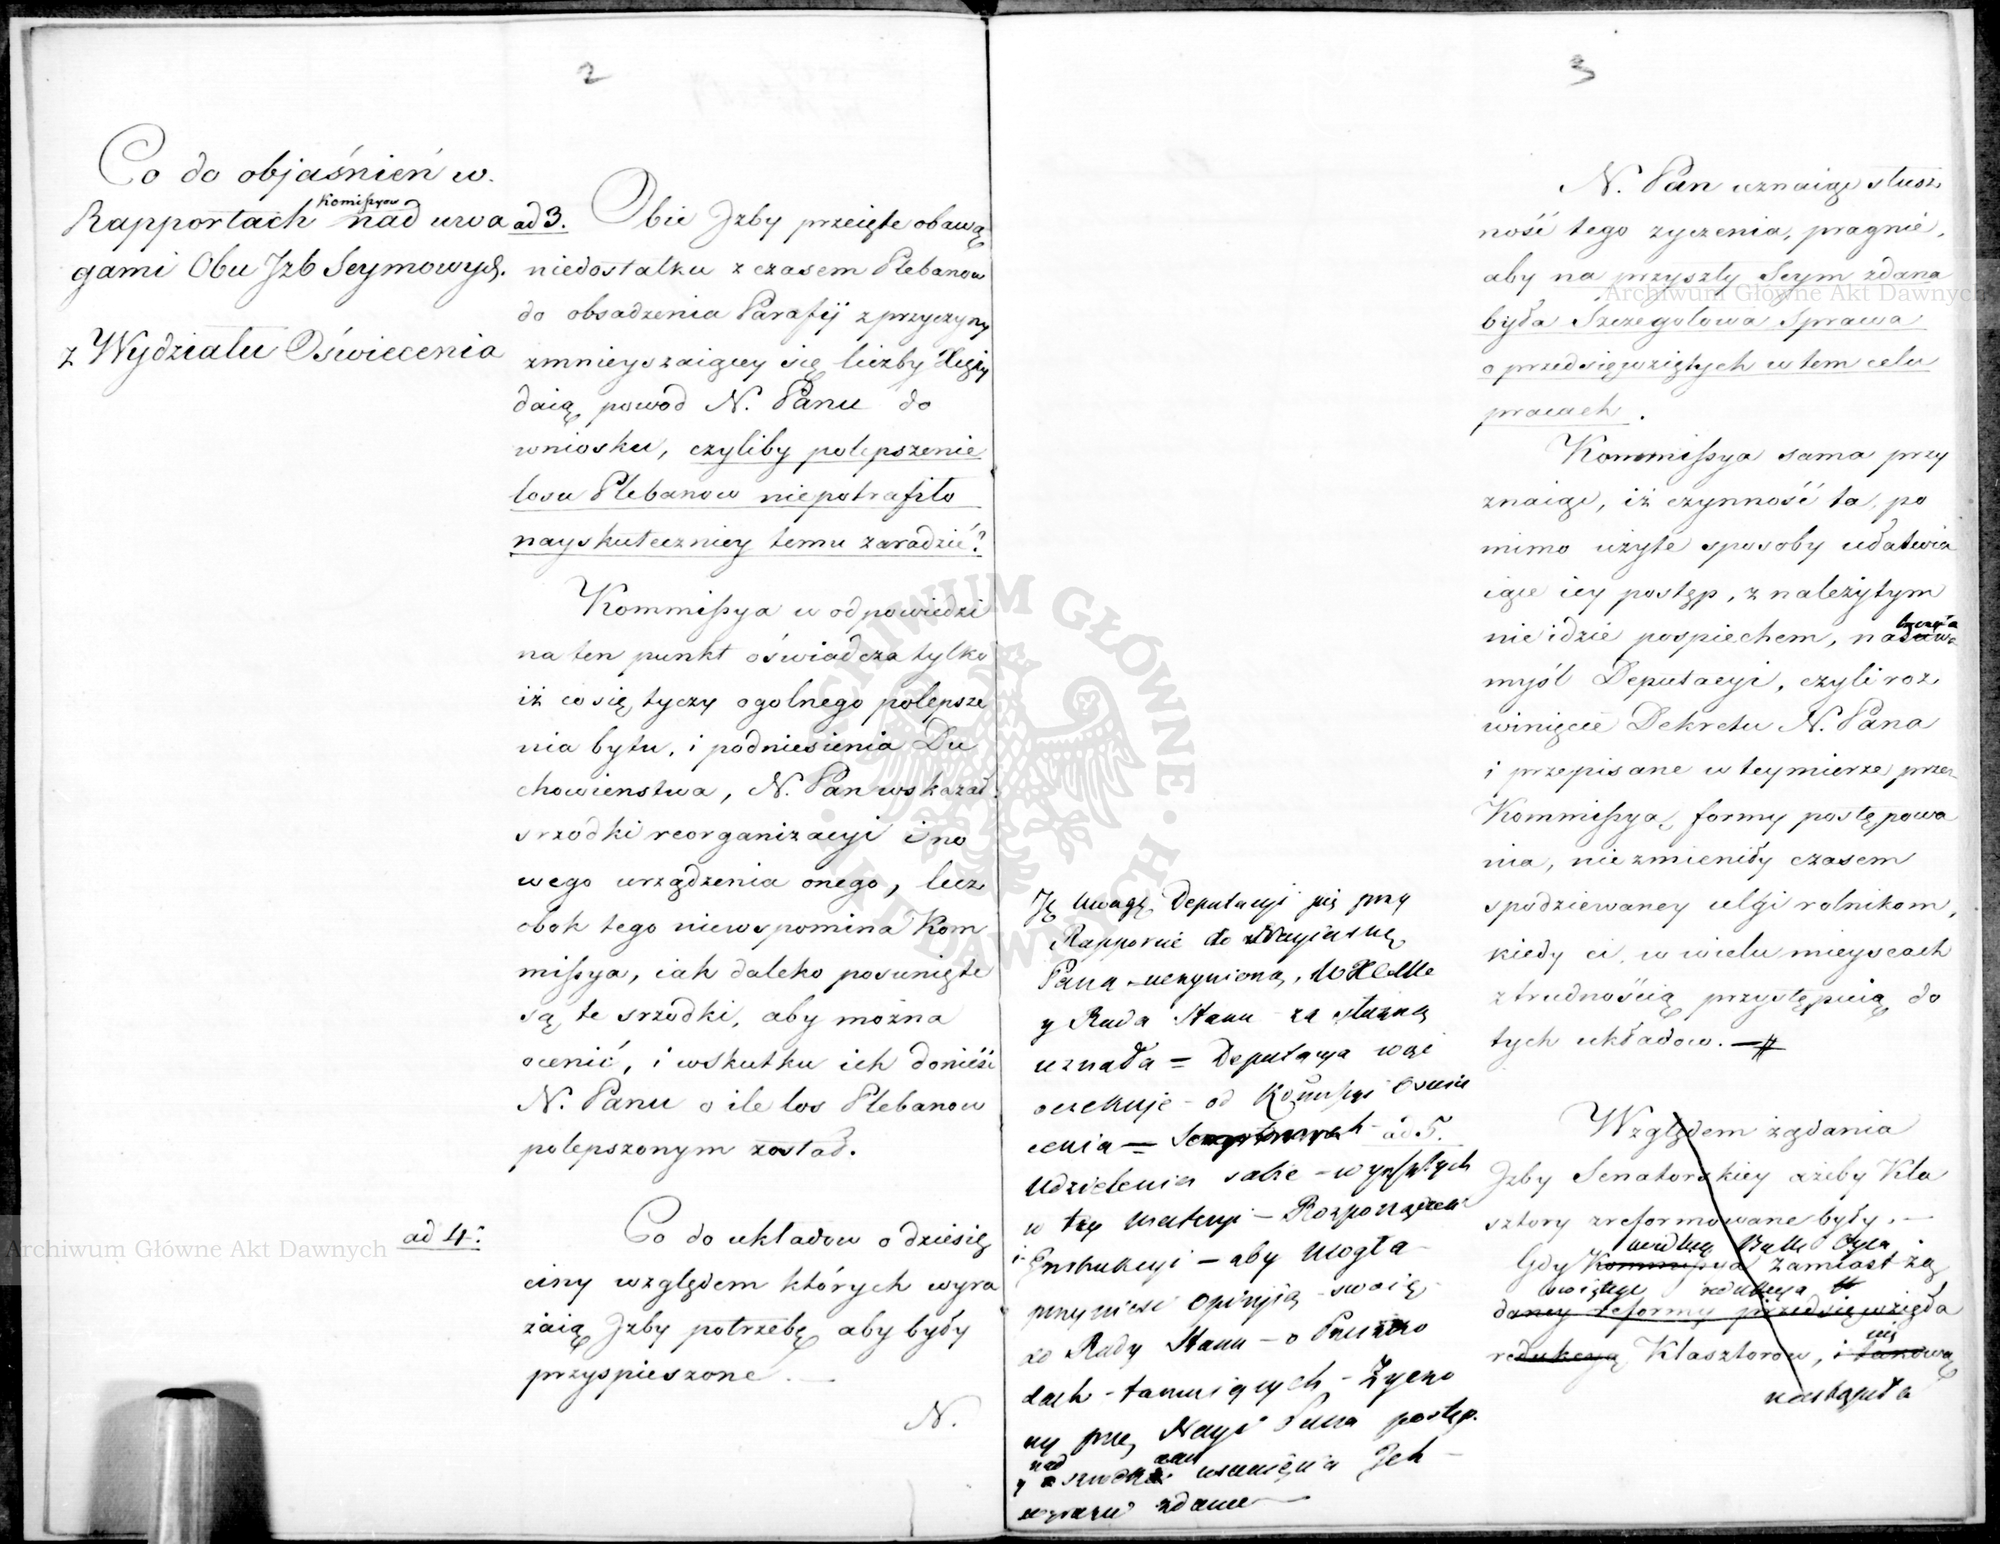 2
Co do objaśnień w
Rapportach Kommissyów nad uwa
gami Obu Jzb Seymowych.
z Wydziału Oświecenia
ad 3. Obie Jzby przeięte obawą
niedostatku z czasem Plebanow
do obsadzenia Parafij z przyczyny
zmnieyszaiącey się liczby Xięży
daią powod N. Panu do
wniosku, czyliby polepszenie
losu Plebanow niepotrafiło
nayskuteczniey temu zaradzić?
Kommissya w odpowiedzi
na ten punkt oświadcza tylko
iż co się tyczy ogolnego polepsze
nia bytu, i podniesienia Du
chowienstwa, N. Pan wskazał
srzodki reorganizacyi i no
wego urządzenia onego, lecz
obok tego niewspomina Kom
missya, iak daleko posunięte
są te srzodki, aby można
ocenić, i wskutku ich donieść
N. Panu o ile los Plebanow
polepszonym został.
ad 4. Co do układow o dziesię
ciny względem których wyra
żaią Jzby potrzebę aby były
przyspieszone.
N.
3
N. Pan uznaiąc słusz
ność tego życzenia, pragnie,
aby na przyszły Seym zdana
była Szczegołowa Sprawa
o przedsięwziętych w tem celu
pracach.
Kommissya sama przy
znaiąc, iż czynność ta, po
mimo użyte sposoby ułatwia
iące iey postęp, z należytym
nie idzie pospiechem, na
myśl Deputacyi, czyli roz
winięcie Dekretu N. Pana
i przepisane w teymierze przez
Kommissyą formy postępowa
nia, nie zmieniły czasem
spodziewaney ulgi rolnikom,
kiedy ci, w wielu mieyscach
z trudnością przystępuią do
tych układow.
Względem żądania
Jzby Senatorskiey ażeby Kla
sztory zreformowane były.
Gdy Kommissya wedlug Bulli Oyca zamiast żą
daney reformy przedsięwzięła
redukcyą Klasztorow, i takową
nastąpiła
Tę Uwagę Deputacyi przy
Rapporcie do Nayiasney
Pana uczynioną,
y Rada Stanu za słuszną
uznała = Deputacya więc
oczekuje od Kommissyi Oswie
cenia = ad 5.
Udzielenia sobie
w tey Materyi - Rozporządzeń
i Jnstrukcyi - aby mogła
przynieść Opinią swoię
do Rady Stanu - o Przeszko
dach - tamuiących - Życzo
ny przez Nayi Pana postęp.
y nad usunięcia Jch
zdanie
Archiwum Główne Akt Dawnych
Archiwum Główne Akt Dawnych
ARCHIWUM GŁÓWNE AKT DAWNYCH